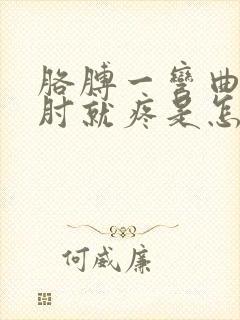 胳膊一弯曲
肘就疼是怎
何威廉